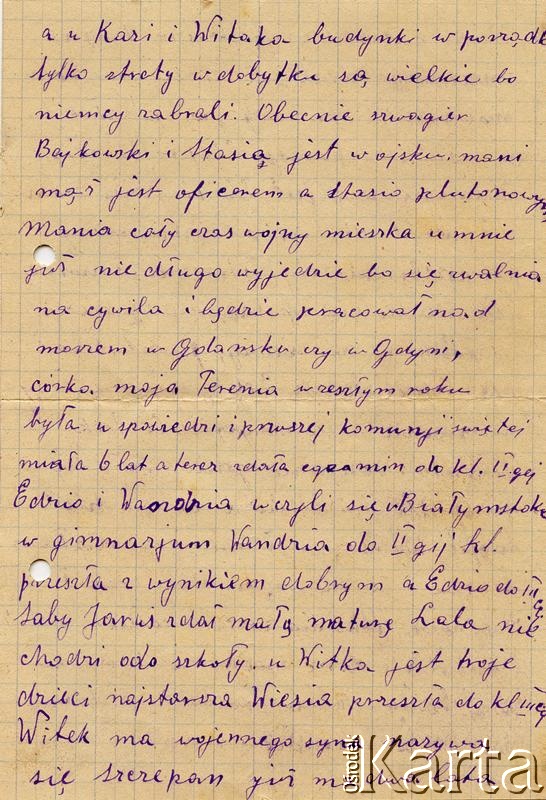 a u Kazi i Witaka budynki w porządk
tylko straty w dobytku są wielkie bo
niemcy zabrali. Obecnie szwagier
Bajkowski i Stasią jest w ojsku. mani
mąż jest oficerem a Stasio plutonowym
Mania cały czas wojny mieszka u mnie
już nie długo wyjedzie bo się zwalnia
na cywila i będzie pracował nad
morzem w Gdańsku czy w Gdyni,
córka moja Terenia w zeszłym roku
była u spowiedzi i prwszej komunji świętej
miała 6 lat a terez zdała egzamin do kl. II giej
Edzio i Wandzia uczyli się w Białymstoku
w gimnazjum Wandzia do II gij kl.
przeszła z wynikiem dobrym a Edzio do III
Saby Jaruś zdał małą maturę Lala nie
chodzi odo szkoły. u Witka jest troje
dzieci najstarsza Wiesia przeszła do kl III
Witek ma wojennego syna nazywa
się Szczepan już ma dwa lata
Ośrodek Karta